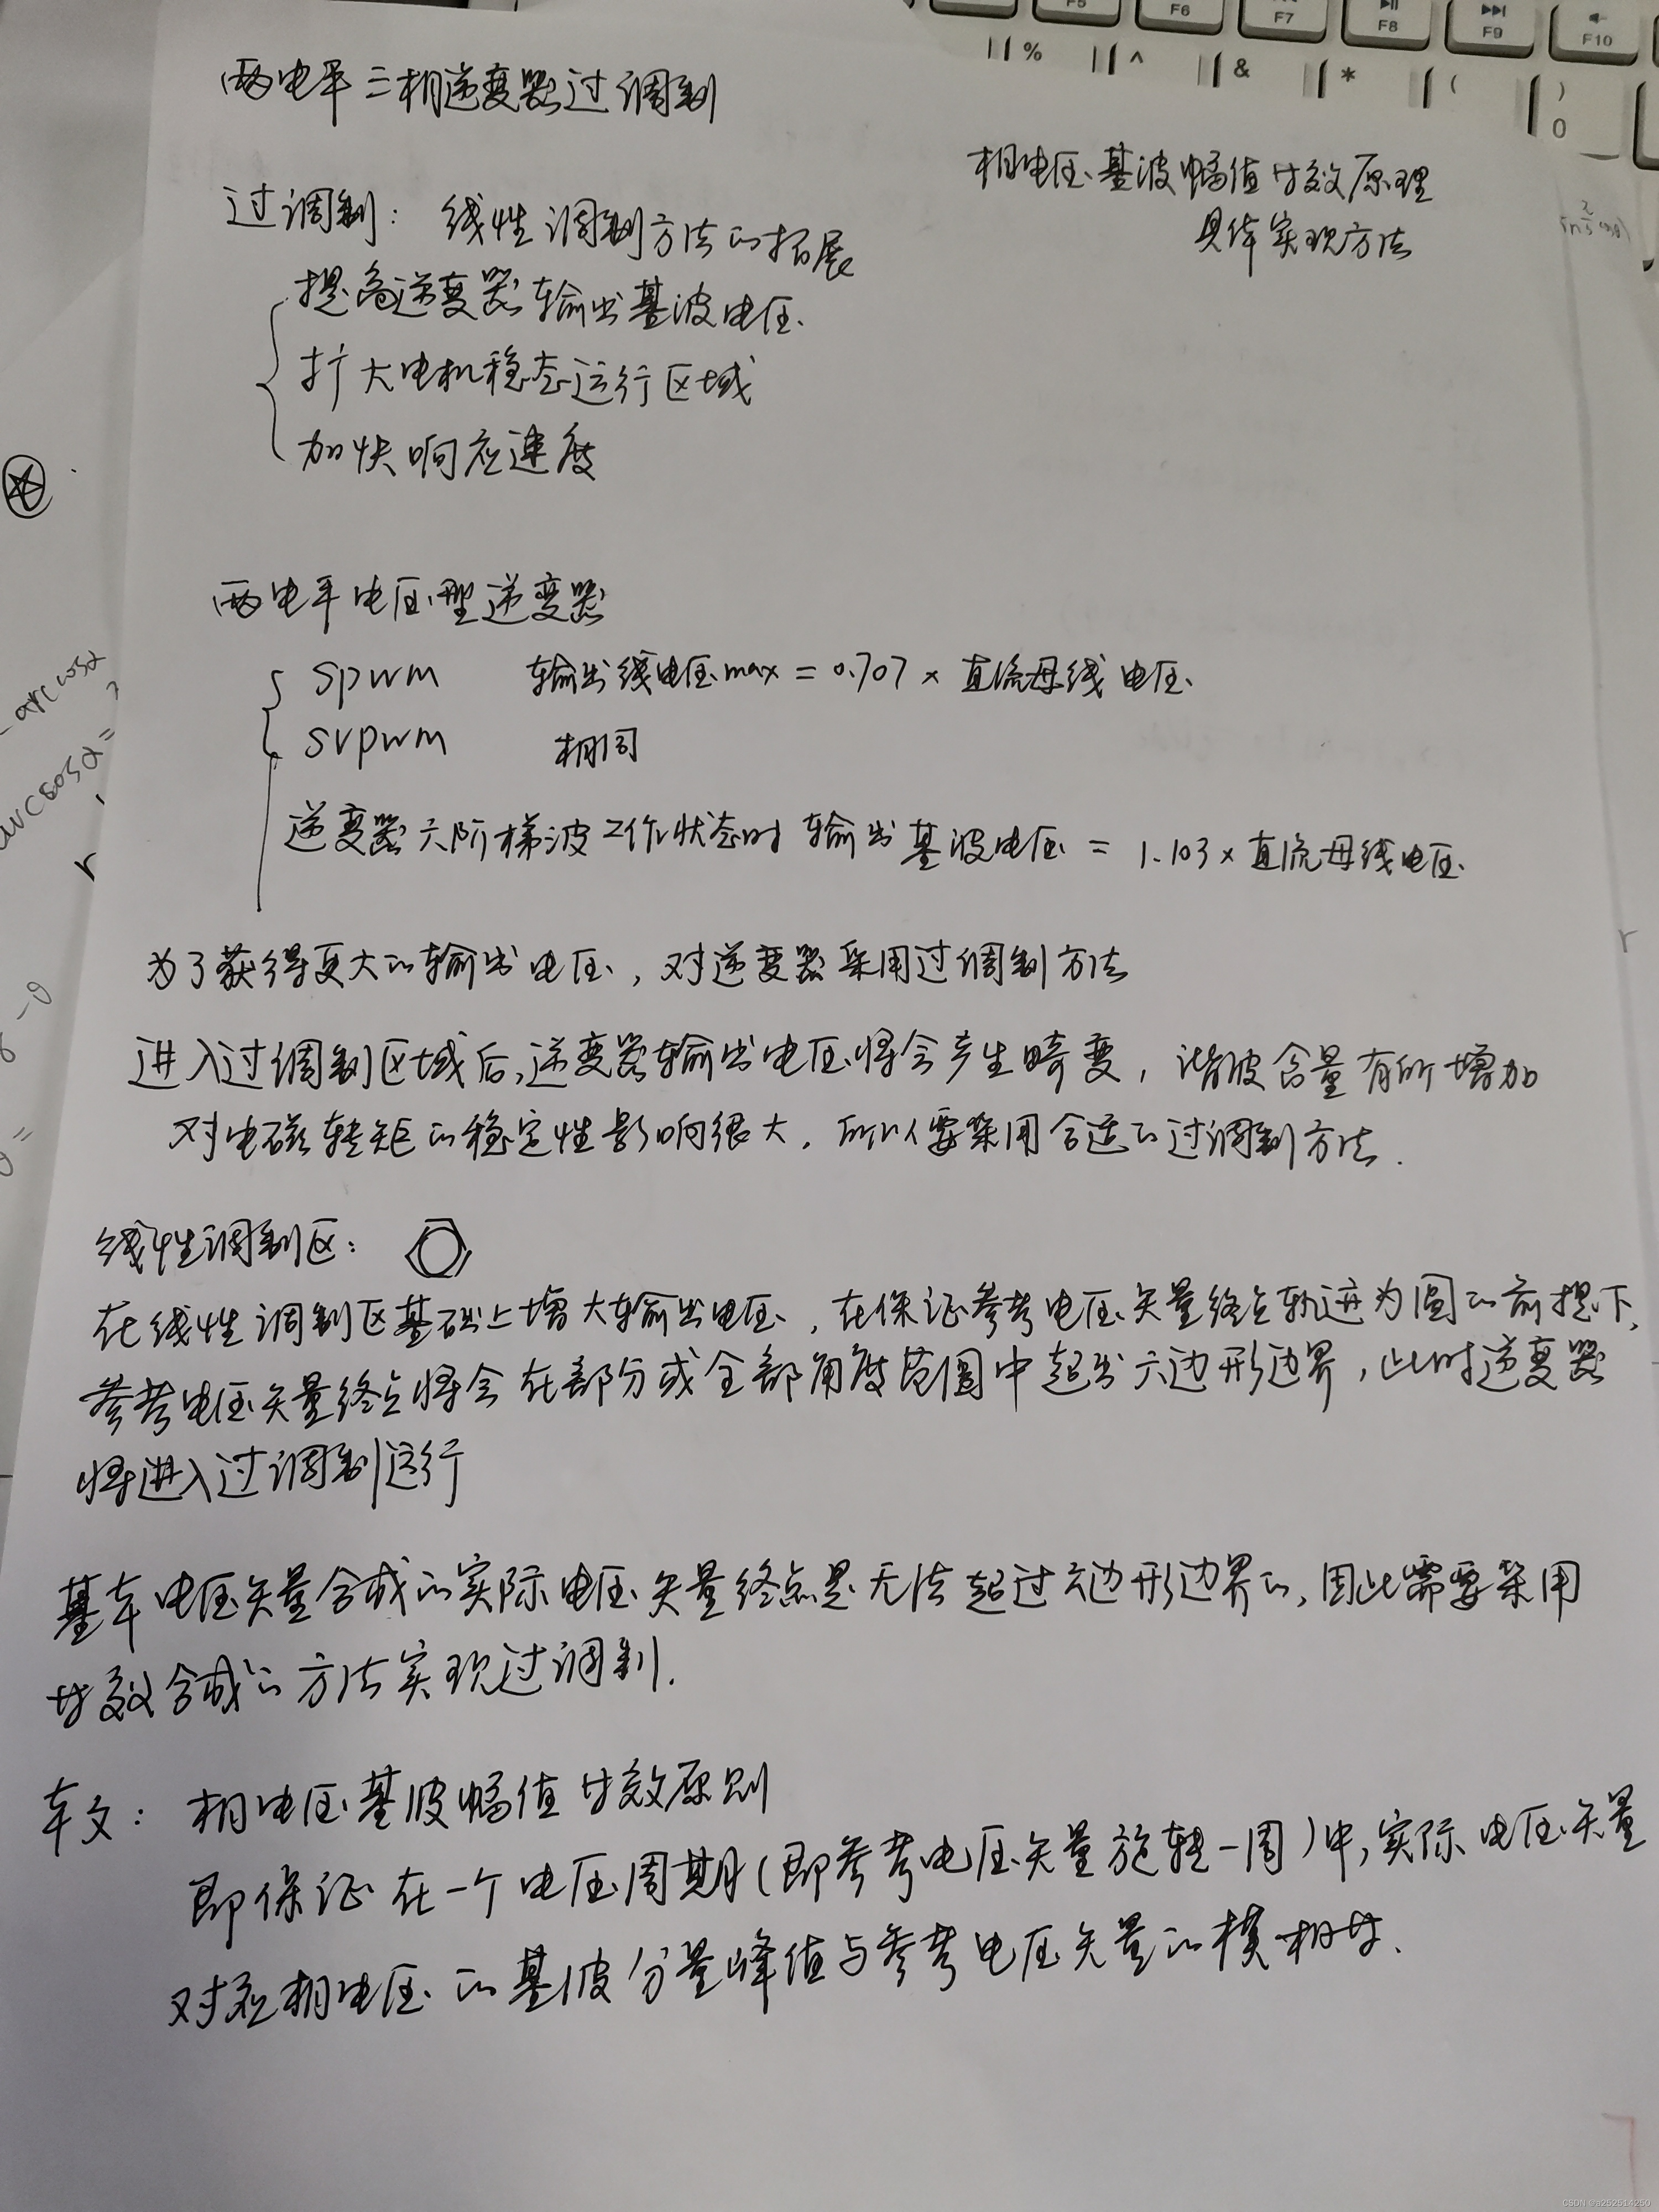 F5 F6 F7 F8 F9 F10
% ^ & * ( ) 0
两电平三相逆变器过调制
相电压基波幅值等效原理
具体实现方法
过调制: 线性调制方法的拓展
提高逆变器输出基波电压
扩大电机稳态运行区域
加快响应速度
两电平电压型逆变器
SPWM 输出线电压max = 0.707 × 直流母线电压
SVPWM 相同
逆变器六阶梯波工作状态时输出基波电压 = 1.103 × 直流母线电压
为了获得更大的输出电压, 对逆变器采用过调制方法
进入过调制区域后, 逆变器输出电压将会产生畸变, 谐波含量有所增加
对电磁转矩的稳定性影响很大, 所以要采用合适的过调制方法.
线性调制区:
在线性调制区基础上增大输出电压, 在保证参考电压矢量终点轨迹为圆的前提下,
参考电压矢量终点将会在部分或全部角度范围中超出六边形边界, 此时逆变器
将进入过调制运行
基本电压矢量合成的实际电压矢量终点是无法超过六边形边界的, 因此需要采用
等效合成的方法实现过调制.
本文: 相电压基波幅值等效原则
即保证在一个电压周期(即参考电压矢量旋转一周)中, 实际电压矢量
对应相电压的基波分量峰值与参考电压矢量的模相等.
- arccosα
arccosα =
r
r
CSDN @a252514250